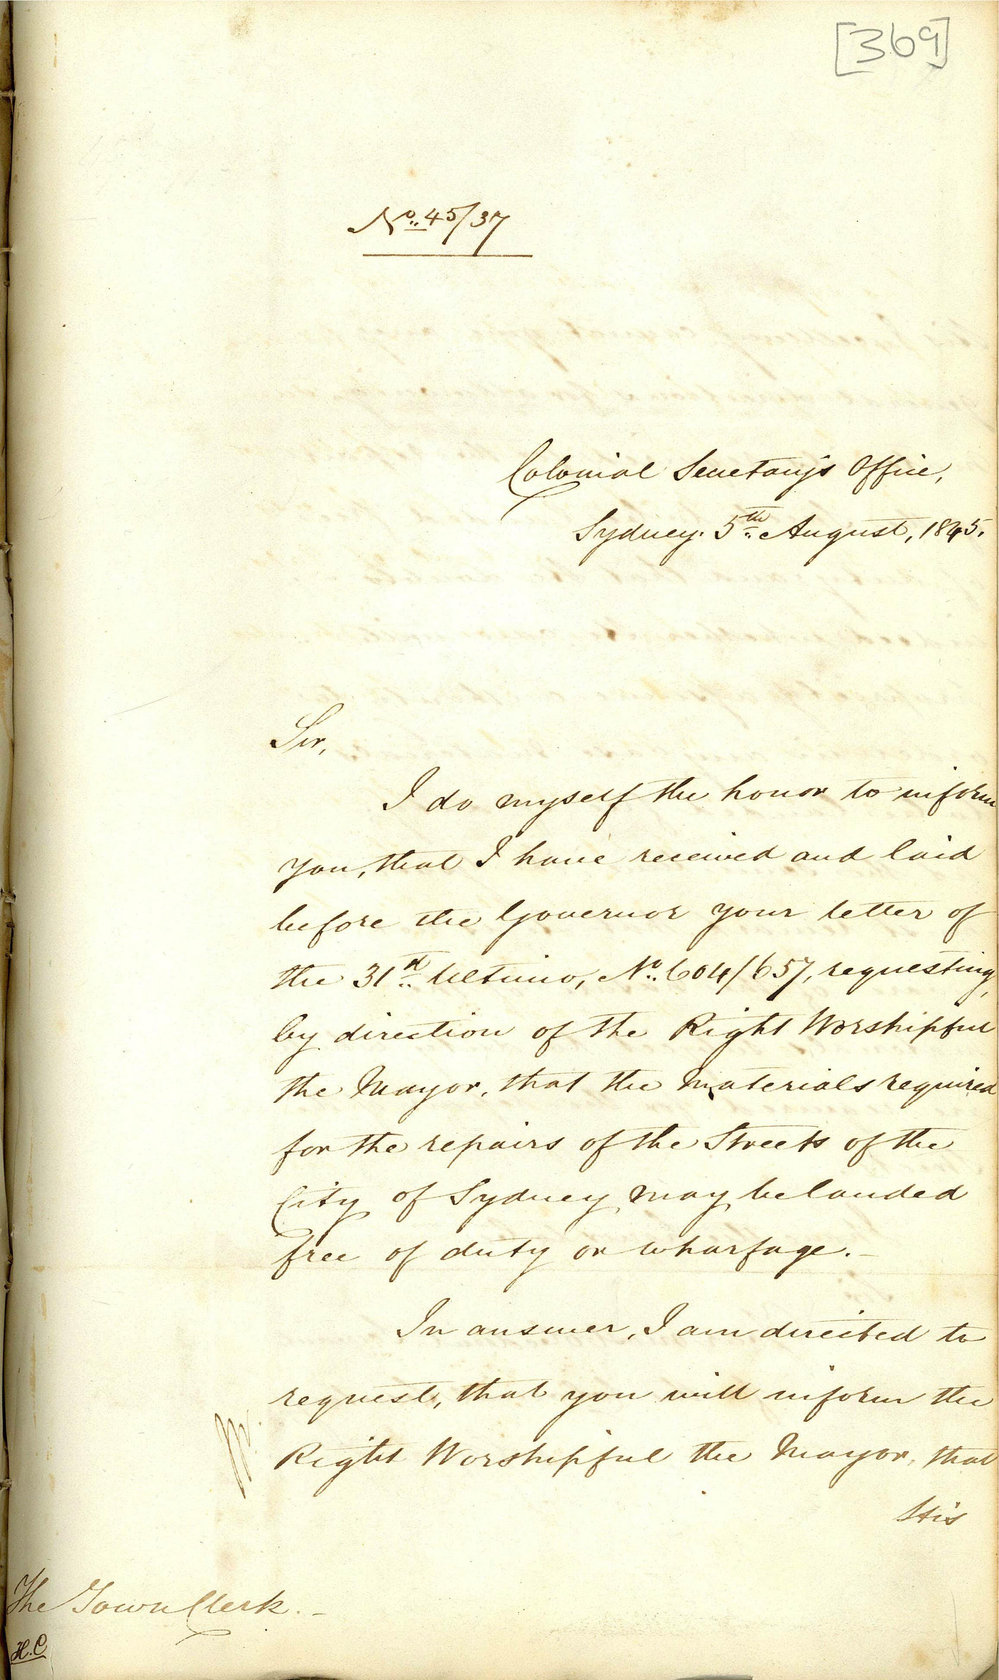 [369]
No. 45/37
Colonial Secretary's Office,
Sydney. 5th August, 1845.
Sir,
I do myself the honor to inform
you, that I have received and laid
before the Governor your letter of
the 31st Ultimo, No. 604/657, requesting,
by direction of the Right Worshipful
the Mayor, that the materials required
for the repairs of the Streets of the
City of Sydney may be landed
free of duty or wharfage.
In answer, I am directed to
request, that you will inform the
Right Worshipful the Mayor, that
His
The Town Clerk.
H.C.